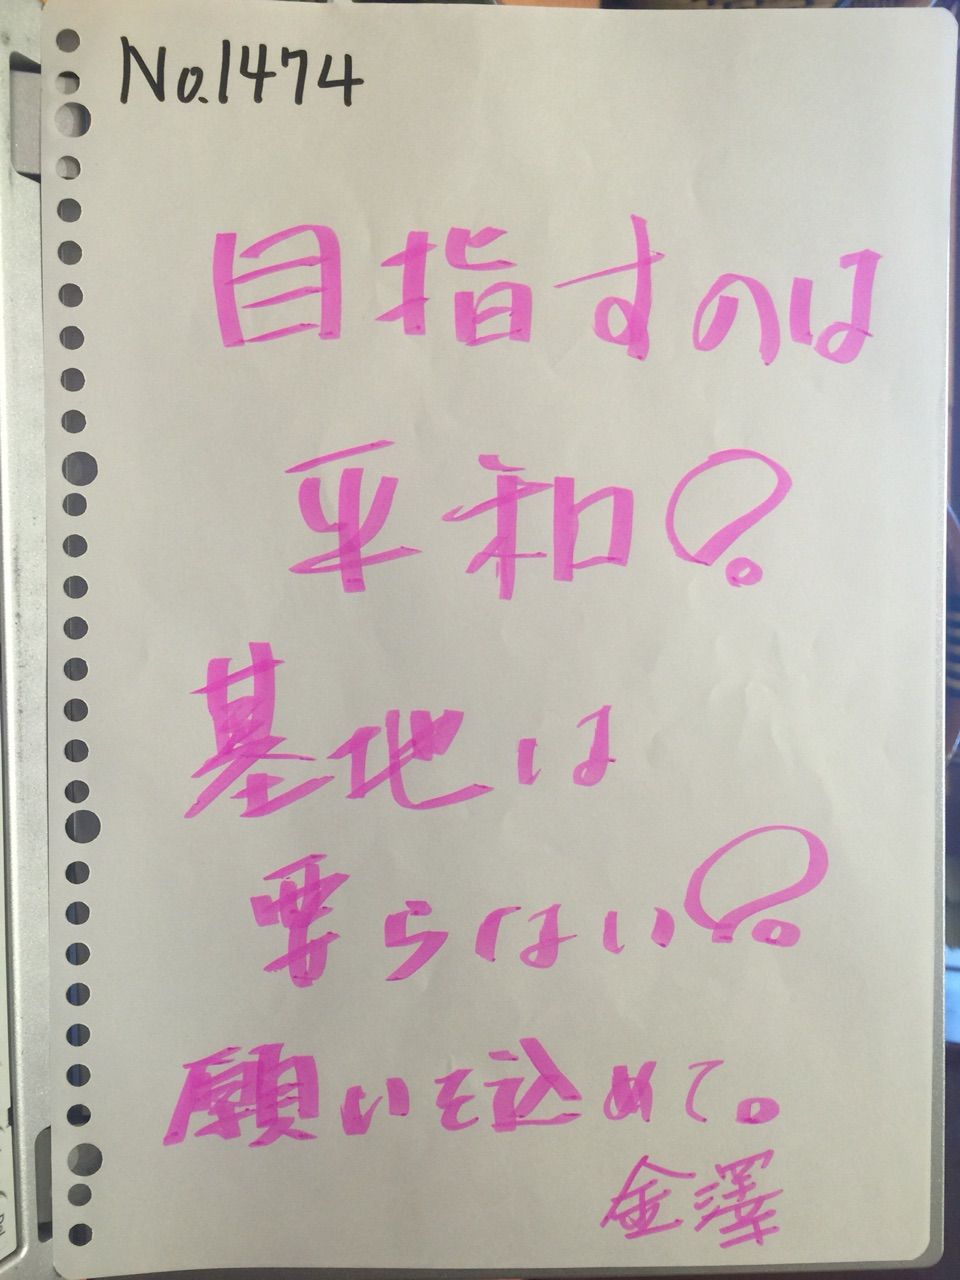 No.1474
目指すのは
平和?
基地は
要らない?
願いを込めて。
金澤